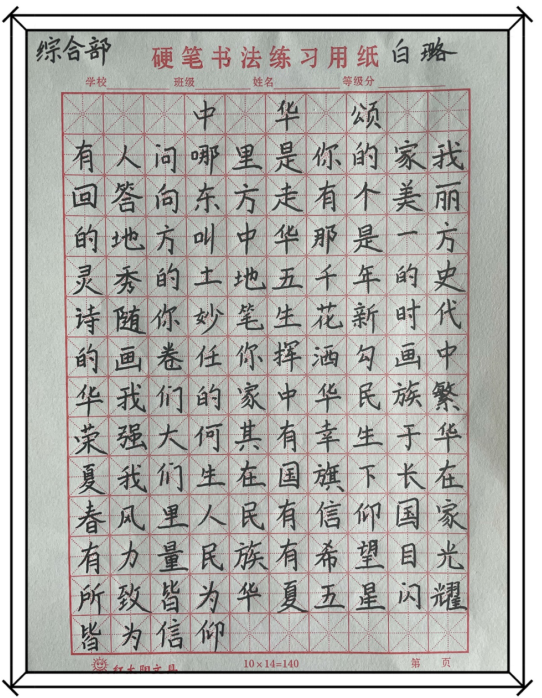 综合部
硬笔书法练习用纸
白璐
学校 班级 姓名 等级分
中华颂
有人问哪里是你的家我
回答向东方走有个美丽
的地方叫中华那是一方
灵秀的土地五千年的史
诗随你妙笔生花新时代
的画卷任你挥洒勾画中
华我们的家中华民族繁
荣强大何其有幸生于华
夏我们生在国旗下长在
春风里人民有信仰国家
有力量民族有希望目光
所致皆为华夏五星闪耀
皆为信仰
10×14=140
第 页